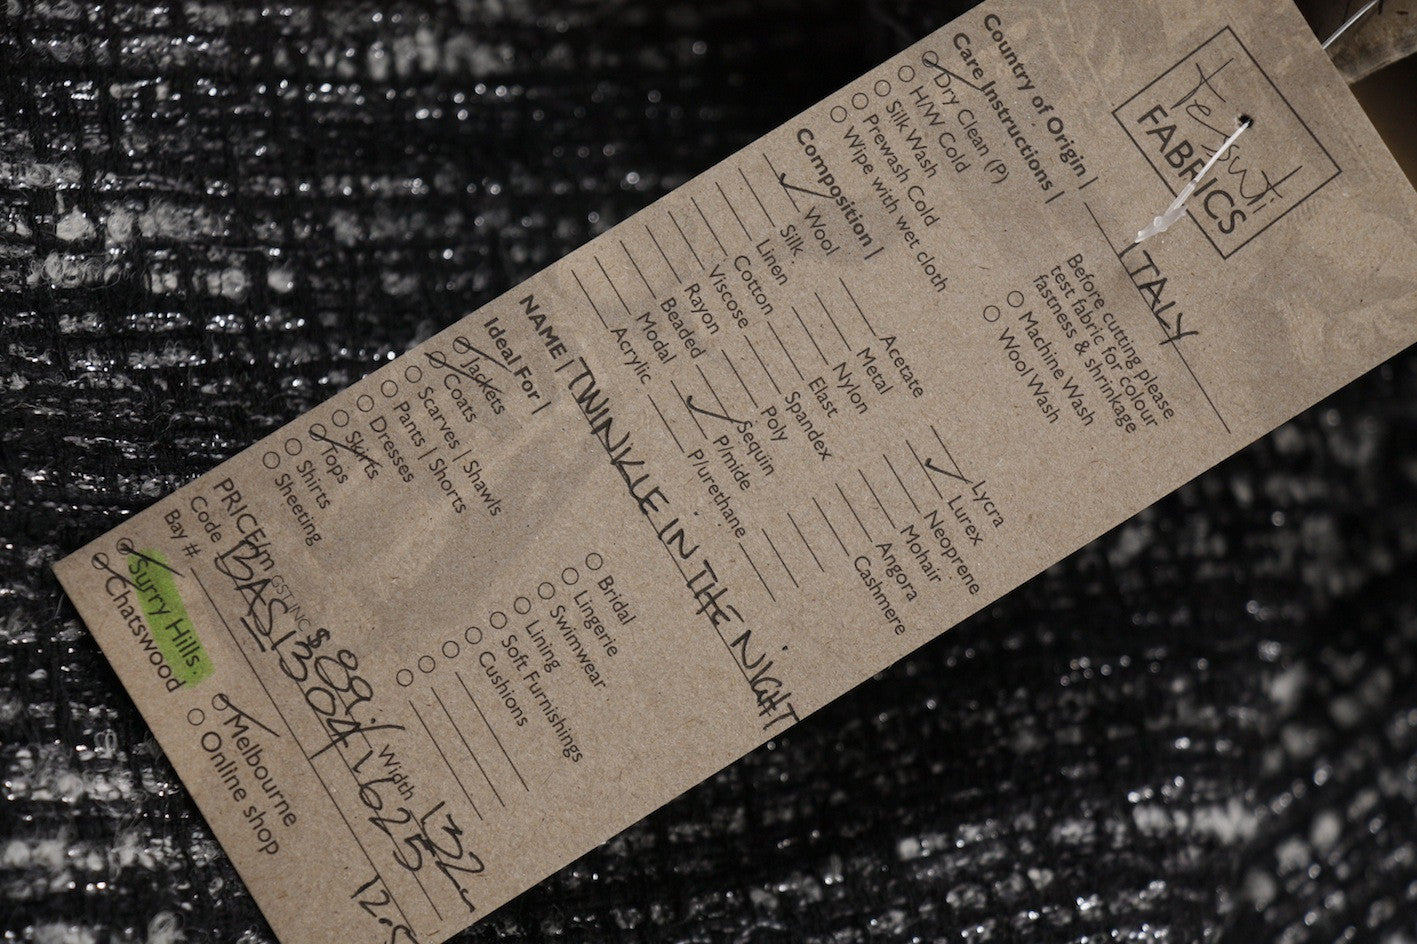 Tessuti
FABRICS
Country of Origin | ITALY
Care Instructions |
Dry Clean (P)
H/W Cold
Silk Wash
Prewash Cold
Wipe with wet cloth
Before cutting please
test fabric for colour
fastness & shrinkage
Machine Wash
Wool Wash
Composition |
Wool
Silk
Linen
Cotton
Viscose
Rayon
Beaded
Modal
Acrylic
Acetate
Metal
Nylon
Elast
Spandex
Poly
Sequin
P/mide
P/urethane
Lycra
Lurex
Neoprene
Mohair
Angora
Cashmere
NAME | TWINKLE IN THE NIGHT
Ideal For |
Jackets
Coats
Scarves | Shawls
Pants | Shorts
Dresses
Skirts
Tops
Shirts
Sheeting
Bridal
Lingerie
Swimwear
Lining
Soft Furnishings
Cushions
PRICE/m GST INC $89.- Width 132
Code BAS1304
Bay #
Surry Hills
Chatswood
Melbourne
Online shop